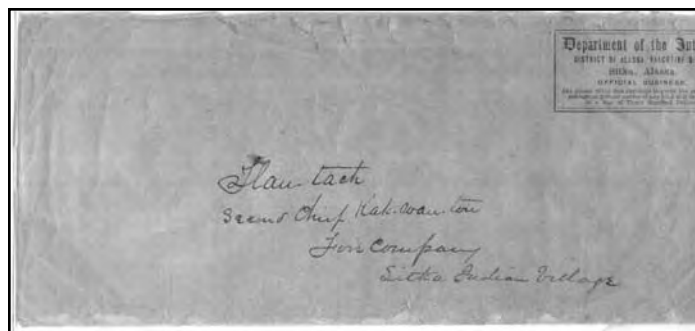 Department of the Int
DISTRICT OF ALASKA, EXECUTIVE
Sitka, Alaska.
OFFICIAL BUSINESS.
Klan-tach
Second Chief Kak-wan-ton
For Company
Sitka Indian Village